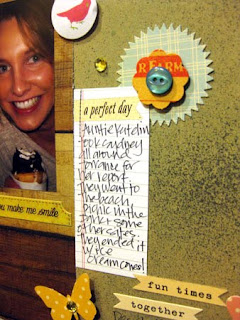 REARM
a perfect day
Auntie Katelin
took Caydney
all around
torrance for
her report.
they went to
the beach,
picnic in the
park + some
other sites.
they ended it
w/ ice
cream cones!
you make me smile
fun times
together